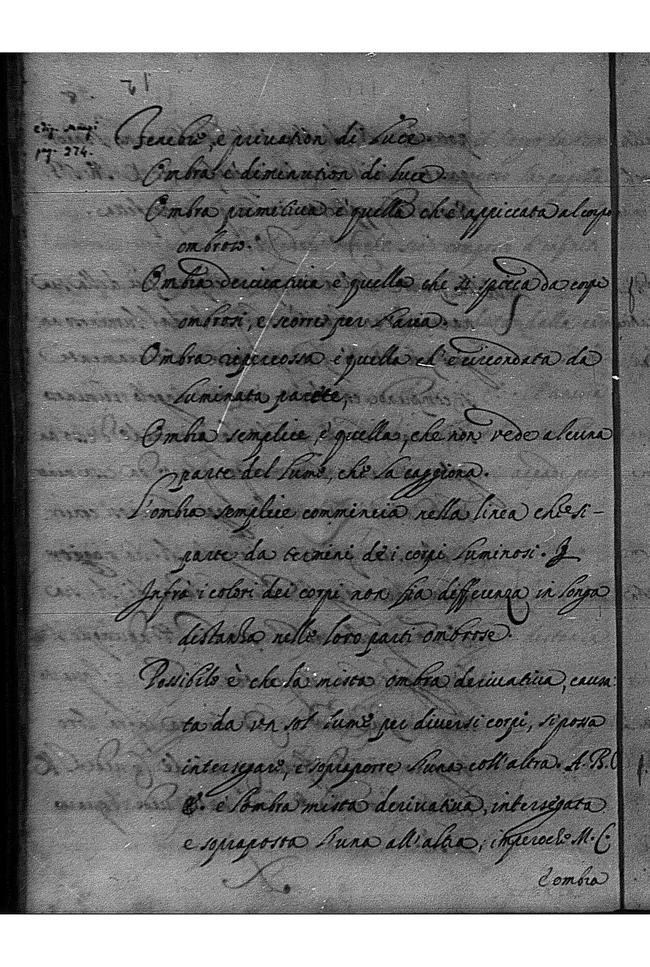 pag. 274.
Tenebre, è privation di luce
Ombra è diminution di luce.
Ombra primitiva è quella ch'è appiccata al corpo
ombroso.
Ombra derivativa è quella che si spicca da corpi
ombrosi, e scorre per l'aria.
Ombra ripercossa è quella ch'è circondata da
luminata parete,
Ombra semplice è quella, che non vede alcuna
parte del lume, che la caggiona.
L'ombra semplice commincia nella linea che si-
parte da termini dei corpi luminosi.
Infrà i colori dei corpi non sia differenza in longa
distanza nelle loro parti ombrose.
Possibile è che la mista ombra derivativa, causa-
ta da un sol lume per diversi corpi, si possa
intersegare, e sopraporre l'una coll'altra. A.B.C
è l'ombra mista derivativa, intersegata
e sopraposta l'una all'altra, imperoche M.C.
è ombra